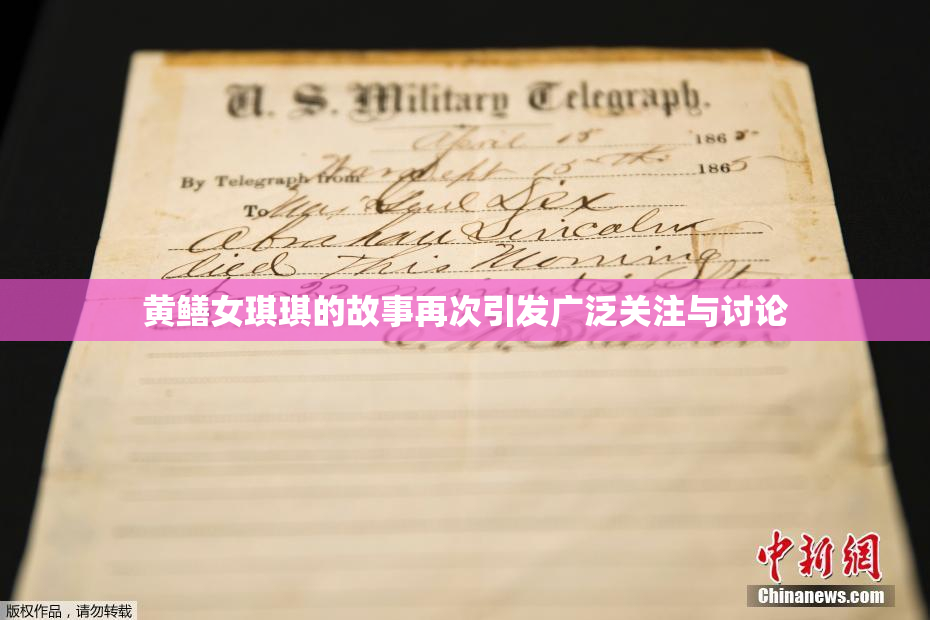 U. S. Military Telegraph.
April 15 1865
By Telegraph from War Dept 15th 1865
To Maj Genl Dix
Abraham Lincoln
died This Morning
22 minutes after
黄鳝女琪琪的故事再次引发广泛关注与讨论
E. M. Stanton
中新网
Chinanews.com
版权作品，请勿转载